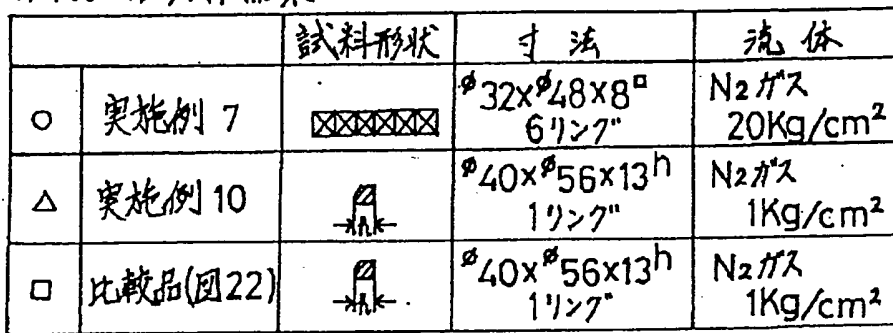 試料形状 寸法 流体
○ 実施例 7 φ32xφ48x8□ 6リング N2ガス 20Kg/cm²
△ 実施例 10 h φ40xφ56x13h 1リング N2ガス 1Kg/cm²
□ 比較品(図22) h φ40xφ56x13h 1リング N2ガス 1Kg/cm²